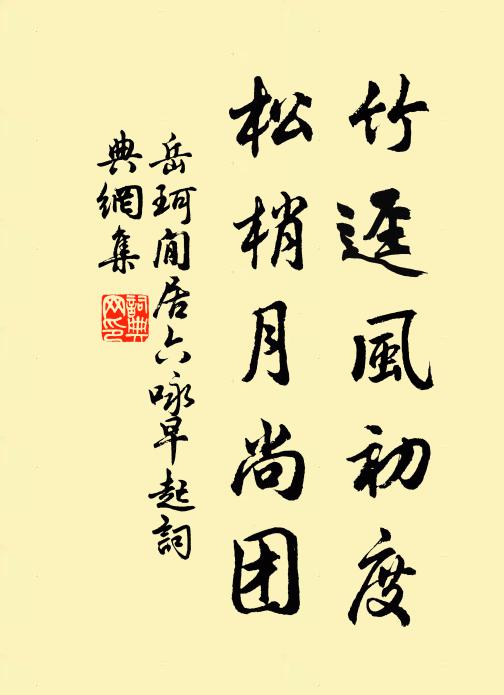 竹迳風初度
松梢月尚团
岳珂閒居六咏早起詞
典網集
詞典
网印